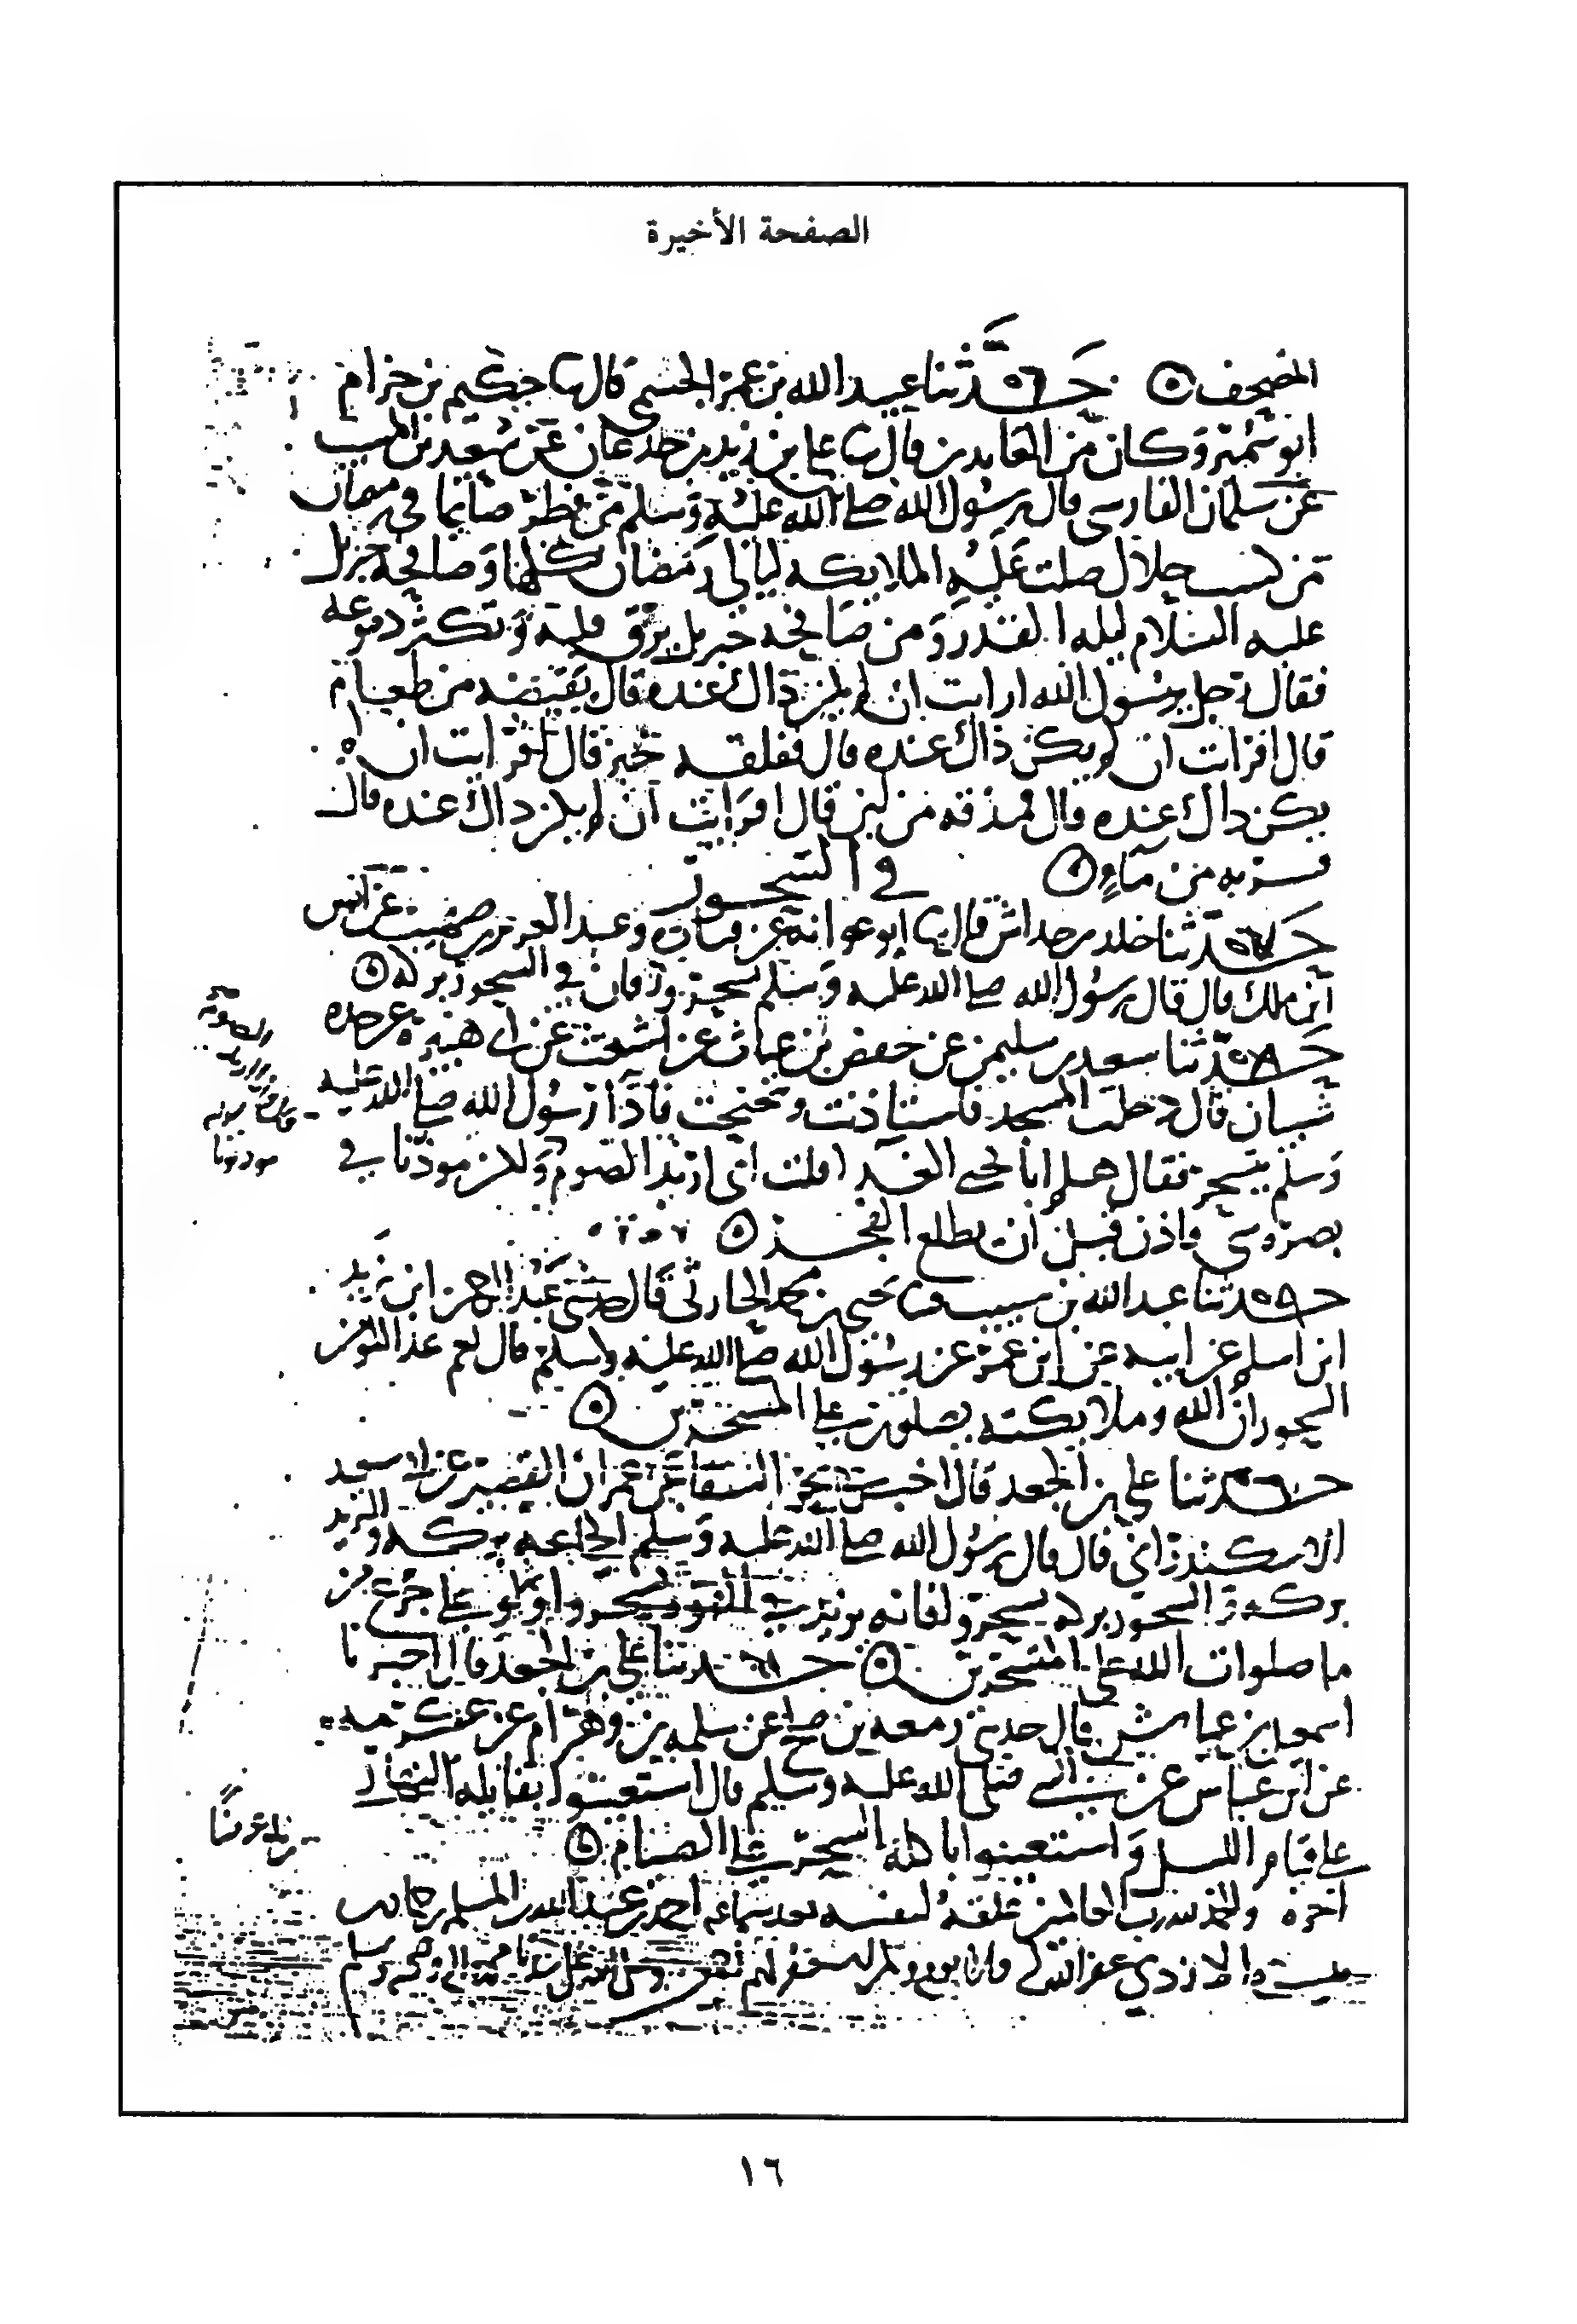 الصفحة الأخيرة
المصحف ⊙ حدثنا ٥٦ عبيد الله بن عمر الجشمي قال حكيم بن خزام
ابو سمير وكان من العابدين قال علي بن زيد بن جدعان عن سعيد بن المسيب
عن سلمان الفارسي قال رسول الله صلى الله عليه وسلم من فطر صايما في رمضان
من كسب حلال صلت عليه الملايكة ليالي رمضان كلها وصافحه جبريل
عليه السلام ليله القدر ومن صافحه جبريل يرق قلبه وتكثر دموعه
فقال رجل يرسول الله ارايت ان لم يكن ذاك عنده قال بقبضه من طعام
قال افرايت ان لم يكن ذاك عنده قال ففلقه خبز قال افرايت ان لم
يكن ذاك عنده قال فمذقه من لبن قال افرايت ان لم يكن ذاك عنده قال
فشربه من ماء ⊙ في السحور
حدثنا ٥٧ خلد بن خداش قال ابو عوانة عن قتادة وعبد العزيز بن صهيب عن انس
ابن ملك قال قال رسول الله صلى الله عليه وسلم تسحروا فان في السحور بركه ⊙
حدثنا ٥٨ سعيد بن سليمن عن حفص بن غياث عن اشعث عن ابي هبيرة عن جده
شيبان قال دخلت المسجد فاستاذنت وتنحنحت فاذا رسول الله صلى الله عليه
وسلم يتسحر فقال هلم ابا يحيى الغدا قلت اني اريد الصوم ولكن موذننا في
بصره سي فاذن قبل ان يطلع الفجر ⊙
حدثنا ٥٩ عبد الله بن شبيب يحيى بن محمد الجاري قال حدثني عبد الرحمن ابن زيد
ابن اسلم عن ابيه عن ابن عمر عن رسول الله صلى الله عليه وسلم قال نعم غدا المؤمن
السحور ان الله وملايكته يصلون على المتسحرين ⊙
حدثنا ٦٠ علي بن الجعد قال اخبرني بحر السقا عن عمران القصير عن ابي سعيد
الاسكندراني قال قال رسول الله صلى الله عليه وسلم الجماعه بركه والثريد
بركه والسحور بركه تسحروا فانه يزيد في القوة تسحروا ولو على جرع من
ما صلوات الله على المتسحرين ⊙ حدثنا ٦١ علي بن الجعد قال اخبرنا
اسمعيل بن عياش قال حدثني زمعه بن صالح عن سلمه بن وهرام عن عكرمه
عن ابن عباس عن النبي صلى الله عليه وسلم قال استعينوا بقايله النهار
على قيام الليل واستعينوا باكلة السحر على الصيام ⊙
اخره والحمد لله رب العالمين علقه لنفسه بعد سماعه احمد بن عبد الله بن المسلم بن حماد بن
ميسرة الازدي عفر الله له
١٦